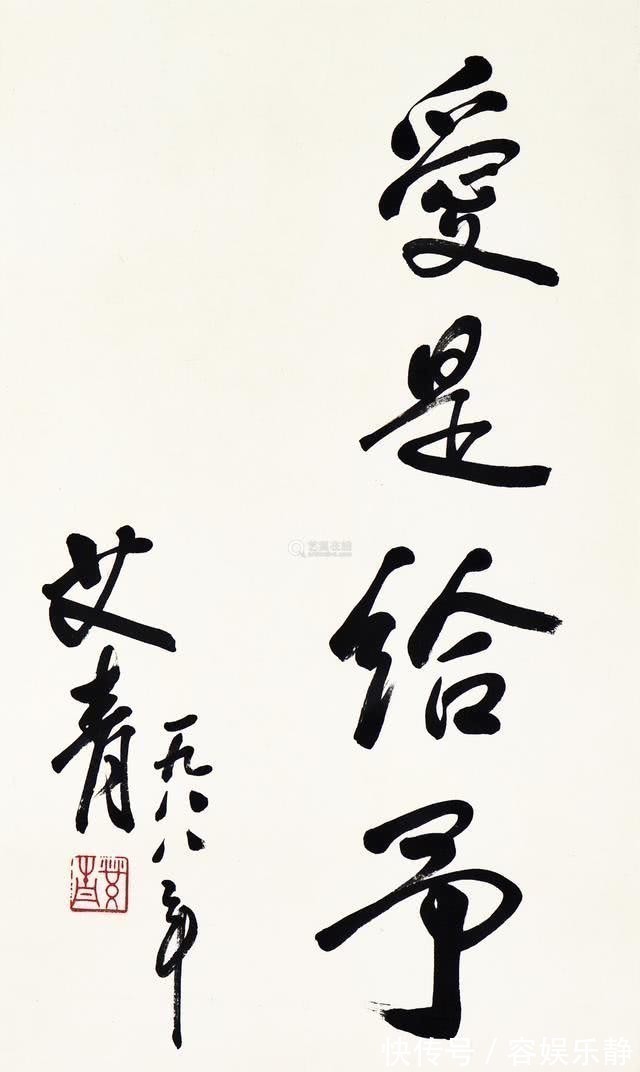 愛是给予
一九八八年
艾青
艾青
快传号/容娱乐静